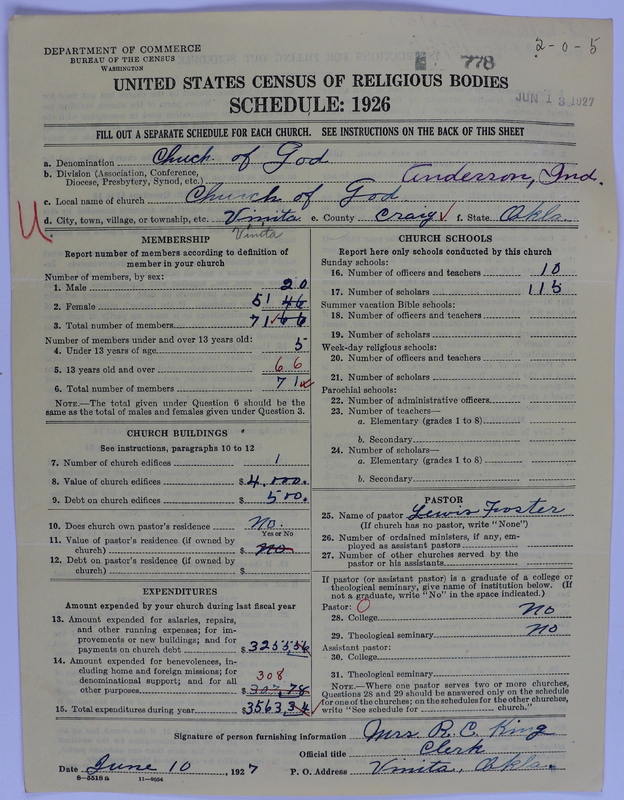 2-0-5
DEPARTMENT OF COMMERCE
BUREAU OF THE CENSUS
WASHINGTON
E. 778
JUN 13 1927
UNITED STATES CENSUS OF RELIGIOUS BODIES
SCHEDULE: 1926
FILL OUT A SEPARATE SCHEDULE FOR EACH CHURCH. SEE INSTRUCTIONS ON THE BACK OF THIS SHEET
a. Denomination Chuch of God
b. Division (Association, Conference, Diocese, Presbytery, Synod, etc.) Anderson, Ind.
c. Local name of church Church of God
U
d. City, town, village, or township, etc. Vinita e. County Craig f. State Okla.
Vinita
MEMBERSHIP
Report number of members according to definition of
member in your church
Number of members, by sex:
1. Male 20
2. Female 51 46
3. Total number of members 71 66
Number of members under and over 13 years old:
4. Under 13 years of age 5
5. 13 years old and over 66
6. Total number of members 71
NOTE.—The total given under Question 6 should be the
same as the total of males and females given under Question 3.
CHURCH BUILDINGS
See instructions, paragraphs 10 to 12
7. Number of church edifices 1
8. Value of church edifices $4,000.
9. Debt on church edifices $ 500.
10. Does church own pastor's residence No.
Yes or No
11. Value of pastor's residence (if owned by
church) $ No
12. Debt on pastor's residence (if owned by
church) $
EXPENDITURES
Amount expended by your church during last fiscal year
13. Amount expended for salaries, repairs,
and other running expenses; for im-
provements or new buildings; and for
payments on church debt $3255.56
14. Amount expended for benevolences, in-
cluding home and foreign missions; for
denominational support; and for all 308
other purposes $307.78
15. Total expenditures during year $3563.34
CHURCH SCHOOLS
Report here only schools conducted by this church
Sunday schools:
16. Number of officers and teachers 10
17. Number of scholars 115
Summer vacation Bible schools:
18. Number of officers and teachers
19. Number of scholars
Week-day religious schools:
20. Number of officers and teachers
21. Number of scholars
Parochial schools:
22. Number of administrative officers
23. Number of teachers—
a. Elementary (grades 1 to 8)
b. Secondary
24. Number of scholars—
a. Elementary (grades 1 to 8)
b. Secondary
PASTOR
25. Name of pastor Lewis Froster
(If church has no pastor, write "None")
26. Number of ordained ministers, if any, em-
ployed as assistant pastors
27. Number of other churches served by the
pastor or his assistants
If pastor (or assistant pastor) is a graduate of a college or
theological seminary, give name of institution below. (If
not a graduate, write "No" in the space indicated.)
Pastor: O
28. College No
29. Theological seminary No
Assistant pastor:
30. College
31. Theological seminary
NOTE.—Where one pastor serves two or more churches,
Questions 28 and 29 should be answered only on the schedule
for one of the churches; on the schedules for the other churches,
write "See schedule for church."
Signature of person furnishing information Mrs. R. C. King
Official title Clerk
Date June 10, 1927 P. O. Address Vinita, Okla.
8-5518a 11-9554